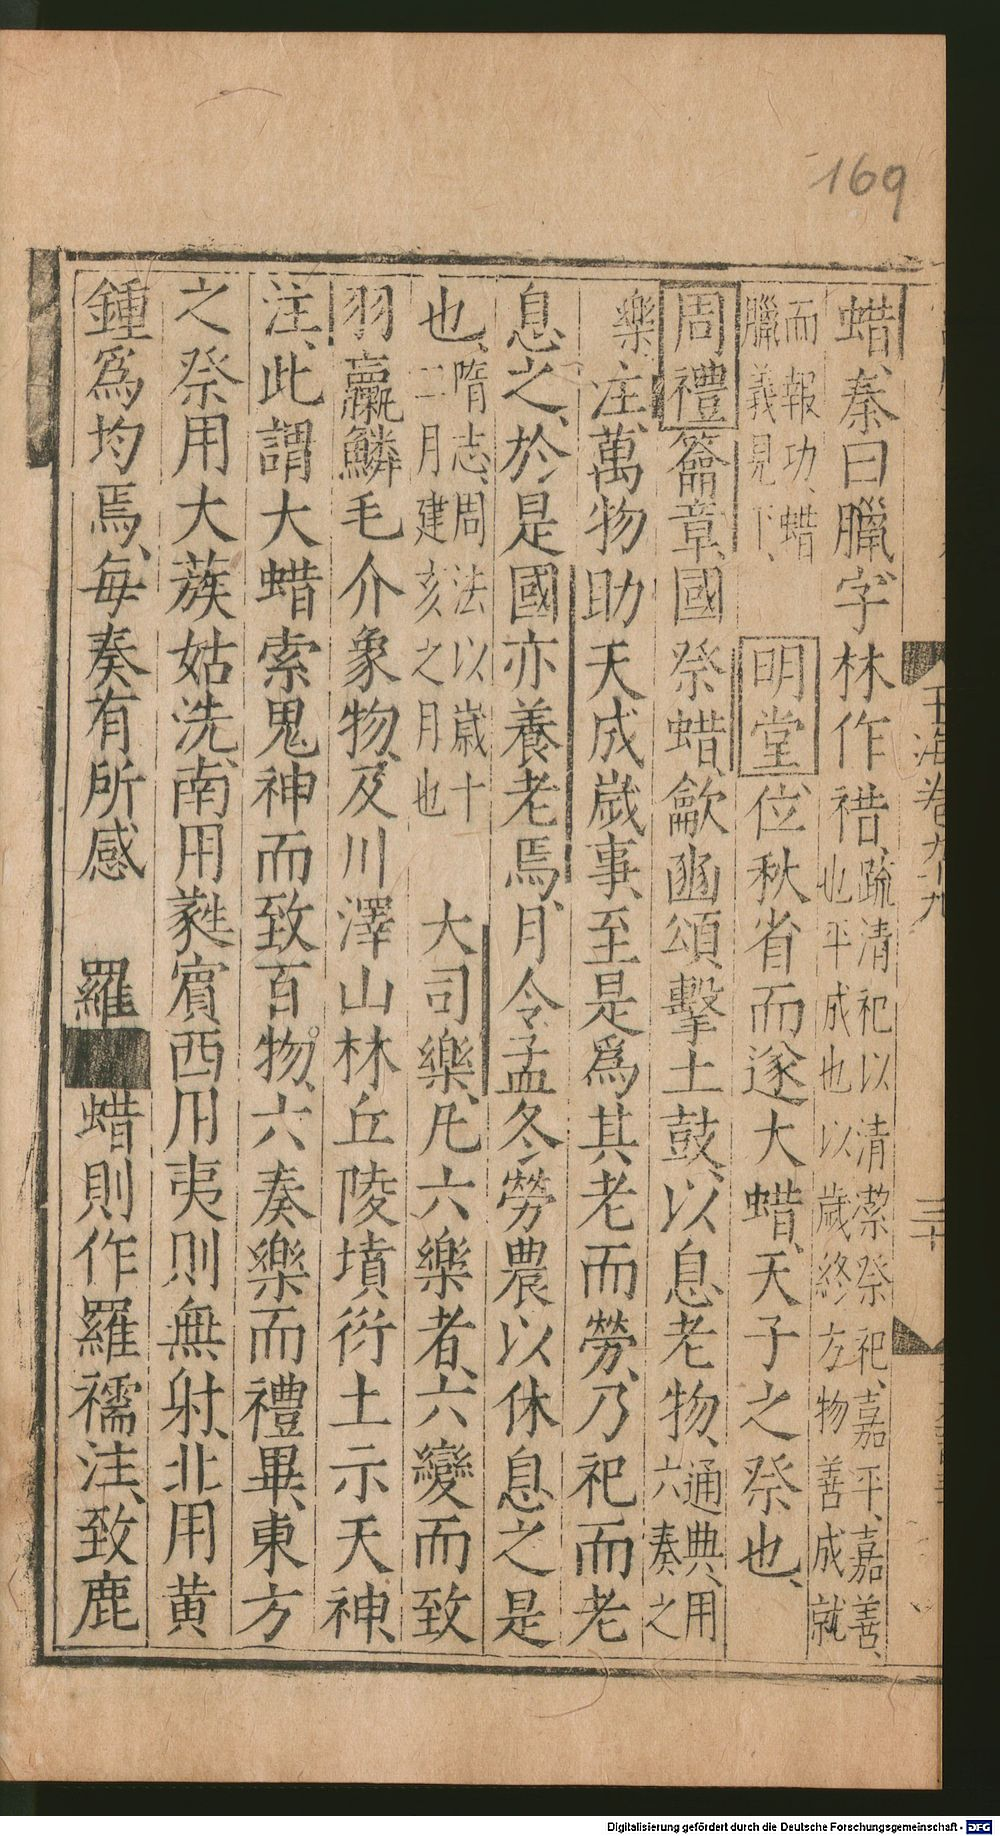 169
蜡、秦曰臘、字林作䄍、疏清祀以清潔祭祀、嘉平、嘉善、
也平成也以歲終万物善成就
而報功、蜡
臘義見下、
明堂位秋省而遂大蜡、天子之祭也、
周禮籥章、國祭蜡、龡豳頌、擊土鼓、以息老物、通典、用
六奏之
樂、注、萬物助天成歲事、至是爲其老而勞、乃祀而老
息之、於是國亦養老焉、月令孟冬勞農以休息之是
也、隋志、周法以歲十
二月建亥之月也
大司樂、凡六樂者、六變而致
羽臝鱗毛介象物、及川澤山林丘陵墳衍土示天神、
注、此謂大蜡索鬼神而致百物、六奏樂而禮畢、東方
之祭用大蔟姑洗、南用蕤賓西用夷則無射、北用黄
鍾爲均焉、每奏有所感 羅 蜡則作羅襦注、致鹿
玉海卷九十九
三十
Digitalisierung gefördert durch die Deutsche Forschungsgemeinschaft - DFG